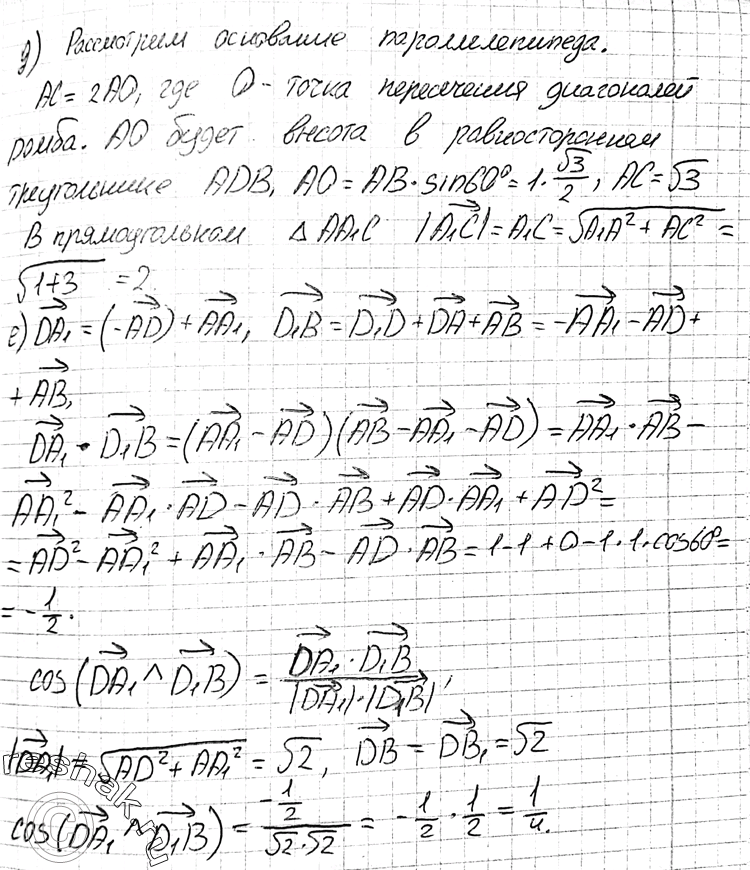 д) Рассмотрим основание параллелепипеда.
AC = 2AO, где O - точка пересечения диагоналей
ромба. AO будет высота в равностороннем
треугольнике ADB, AO = AB · sin60° = 1 · √3/2, AC = √3
В прямоугольном △ AA₁C |A₁C→| = A₁C = √(A₁A² + AC²) =
√(1+3) = 2.
е) DA₁→ = (-AD→) + AA₁→, D₁B→ = D₁D→ + DA→ + AB→ = -AA₁→ - AD→ +
+ AB→,
DA₁→ · D₁B→ = (AA₁→ - AD→)(AB→ - AA₁→ - AD→) = AA₁→ · AB→ -
AA₁→² - AA₁→ · AD→ - AD→ · AB→ + AD→ · AA₁→ + AD→² =
= AD→² - AA₁→² + AA₁→ · AB→ - AD→ · AB→ = 1 - 1 + 0 - 1 · 1 · cos60° =
= -1/2.
cos(DA₁→ ^ D₁B→) = (DA₁→ · D₁B→)/(|DA₁→| · |D₁B→|),
|DA₁→| = √(AD² + AA₁²) = √2, DB→ = DB₁→ = √2
cos(DA₁→ ^ D₁B→) = (-1/2)/(√2 · √2) = -1/2 · 1/2 = 1/4.
reshak.ru